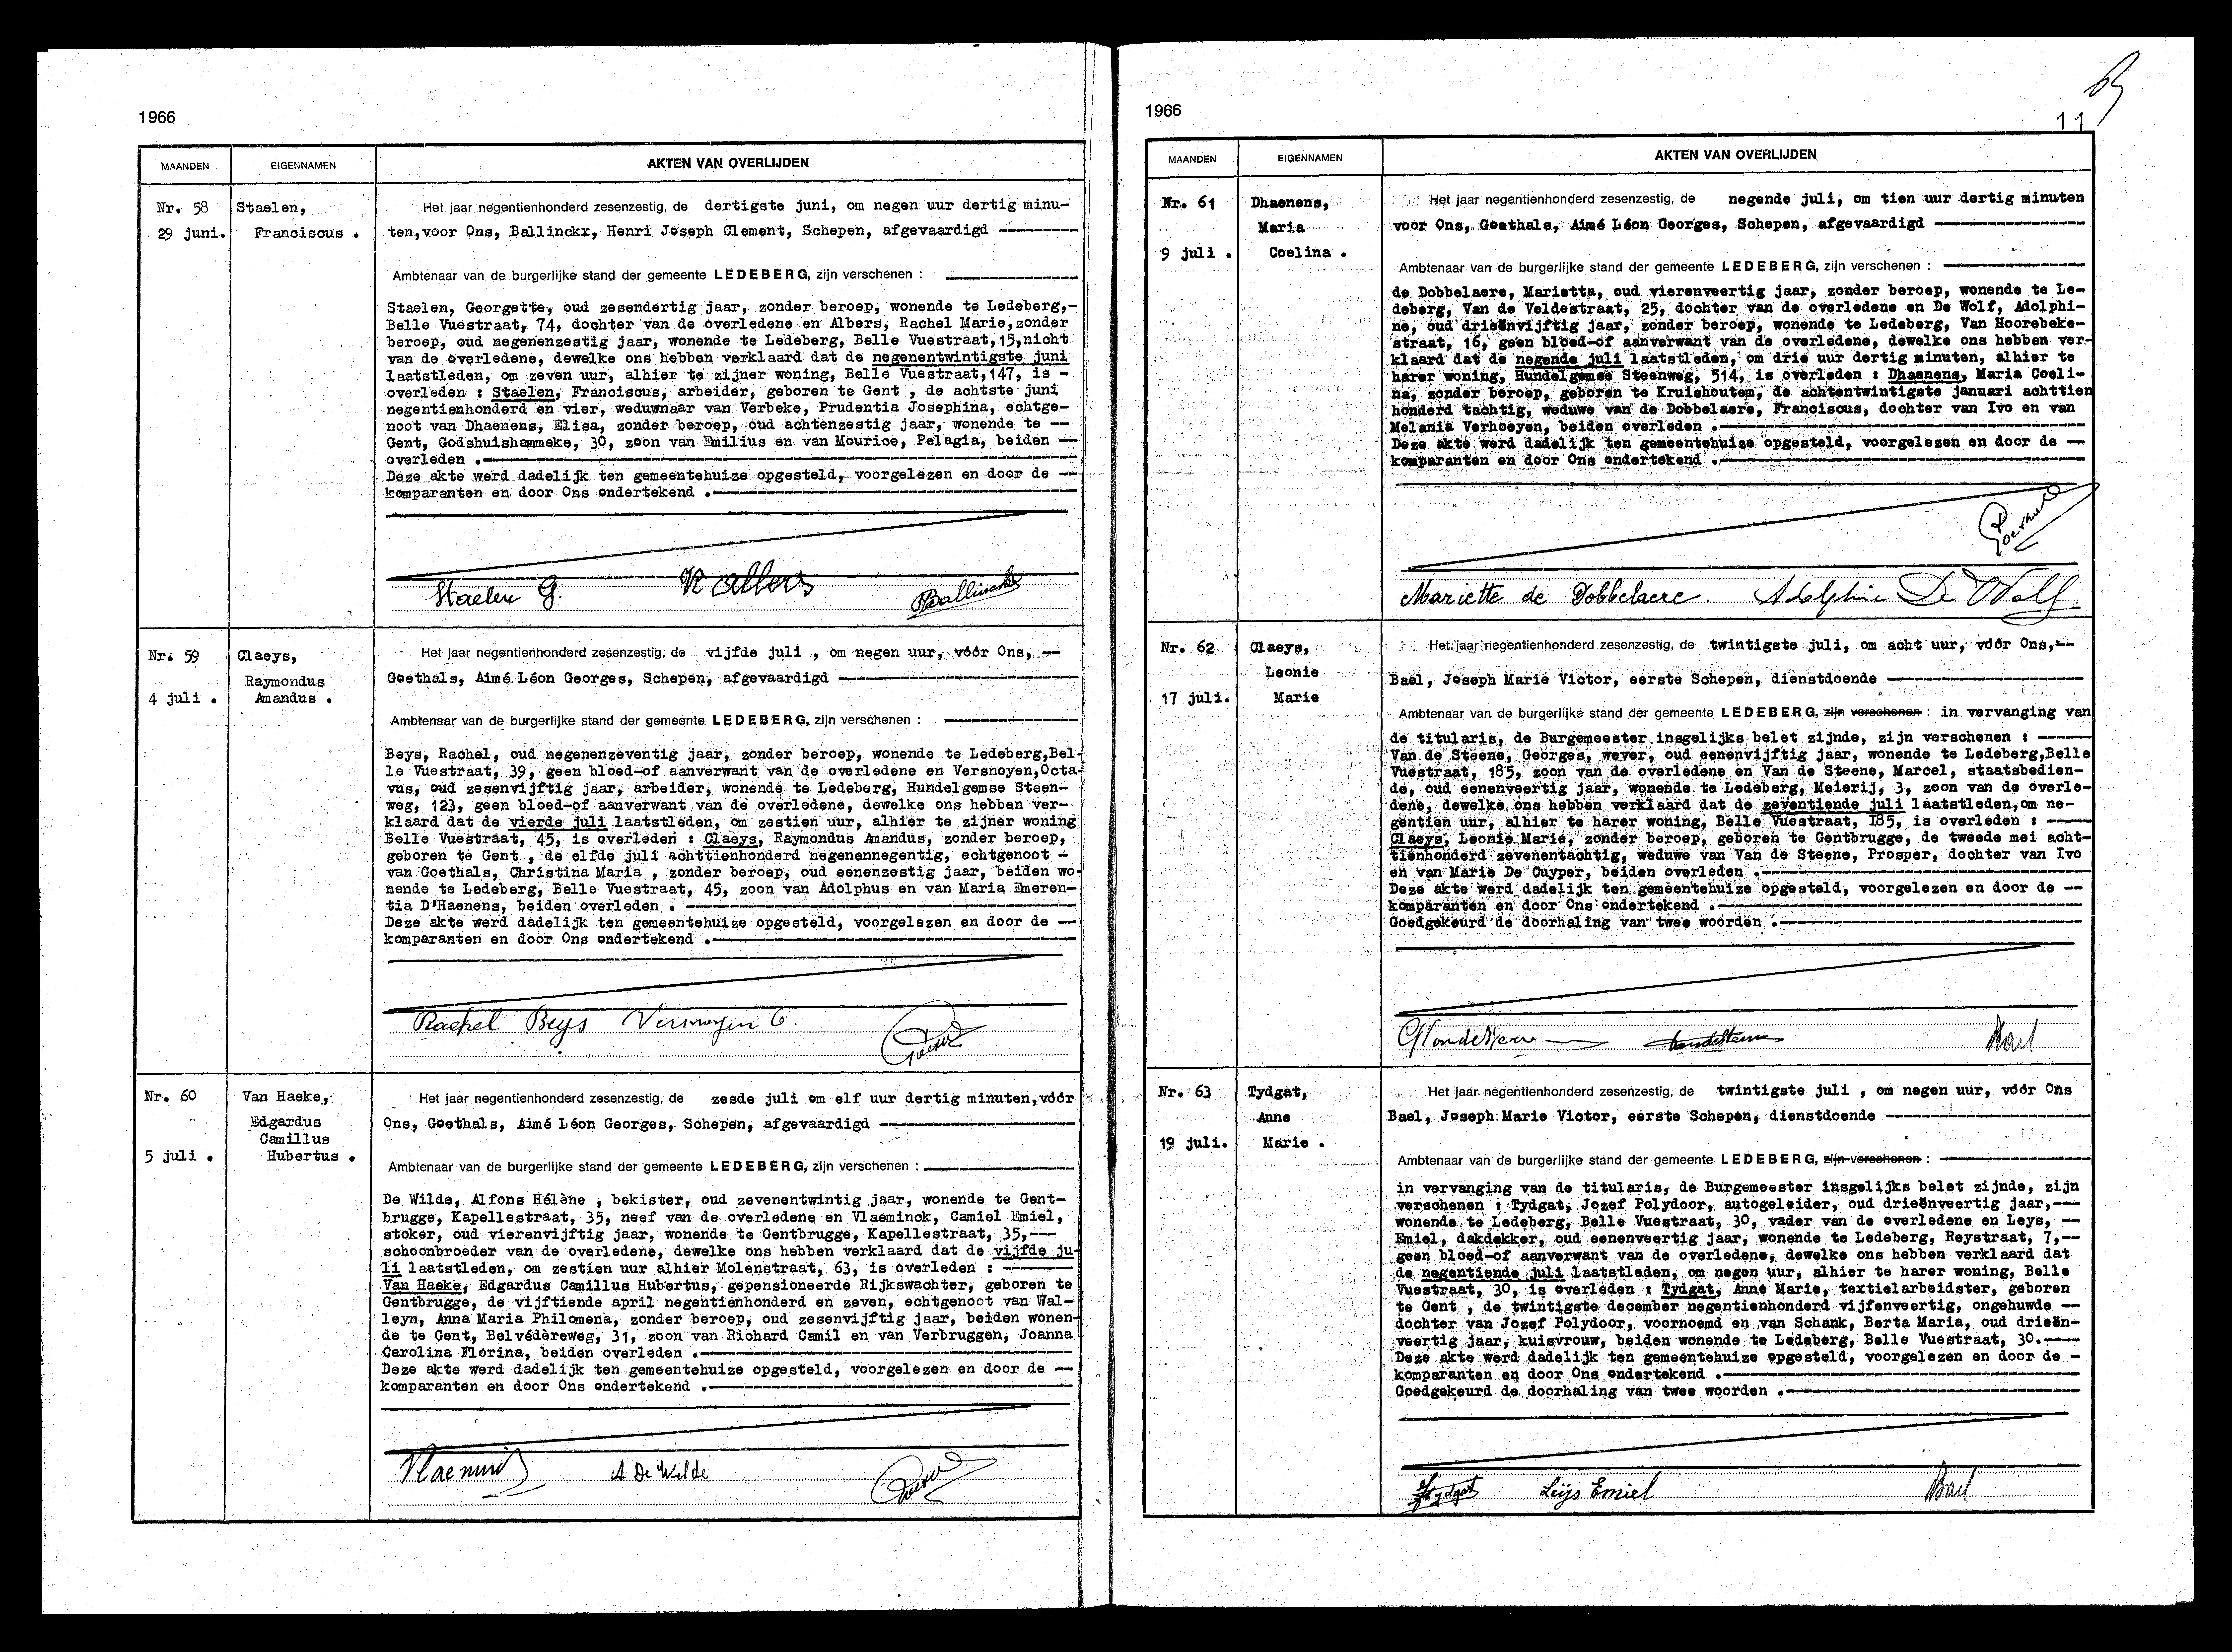 1966
MAANDEN EIGENNAMEN AKTEN VAN OVERLIJDEN
Nr. 58
29 juni.
Staelen,
Franciscus .
Het jaar negentienhonderd zesenzestig, de dertigste juni, om negen uur dertig minu-
ten,voor Ons, Ballinckx, Henri Joseph Clement, Schepen, afgevaardigd
Ambtenaar van de burgerlijke stand der gemeente LEDEBERG, zijn verschenen :
Staelen, Georgette, oud zesendertig jaar, zonder beroep, wonende te Ledeberg,-
Belle Vuestraat, 74, dochter van de overledene en Albers, Rachel Marie,zonder
beroep, oud negenenzestig jaar, wonende te Ledeberg, Belle Vuestraat,15,nicht
van de overledene, dewelke ons hebben verklaard dat de negenentwintigste juni
laatstleden, om zeven uur, alhier te zijner woning, Belle Vuestraat,147, is -
overleden : Staelen, Franciscus, arbeider, geboren te Gent , de achtste juni
negentienhonderd en vier, weduwnaar van Verbeke, Prudentia Josephina, echtge-
noot van Dhaenens, Elisa, zonder beroep, oud achtenzestig jaar, wonende te --
Gent, Godshuishammeke, 30, zoon van Emilius en van Mourice, Pelagia, beiden --
overleden .
Deze akte werd dadelijk ten gemeentehuize opgesteld, voorgelezen en door de --
komparanten en door Ons ondertekend .
Staelen G. R Albers HBallinckx
Nr. 59
4 juli .
Claeys,
Raymondus
Amandus .
Het jaar negentienhonderd zesenzestig, de vijfde juli , om negen uur, vóór Ons, --
Goethals, Aimé Léon Georges, Schepen, afgevaardigd
Ambtenaar van de burgerlijke stand der gemeente LEDEBERG, zijn verschenen :
Beys, Rachel, oud negenenzeventig jaar, zonder beroep, wonende te Ledeberg,Bel-
le Vuestraat, 39, geen bloed-of aanverwant van de overledene en Versnoyen,Octa-
vus, oud zesenvijftig jaar, arbeider, wonende te Ledeberg, Hundelgemse Steen-
weg, 123, geen bloed-of aanverwant van de overledene, dewelke ons hebben ver-
klaard dat de vierde juli laatstleden, om zestien uur, alhier te zijner woning
Belle Vuestraat, 45, is overleden : Claeys, Raymondus Amandus, zonder beroep,
geboren te Gent , de elfde juli achttienhonderd negenennegentig, echtgenoot -
van Goethals, Christina Maria , zonder beroep, oud eenenzestig jaar, beiden wo-
nende te Ledeberg, Belle Vuestraat, 45, zoon van Adolphus en van Maria Emeren-
tia D'Haenens, beiden overleden .
Deze akte werd dadelijk ten gemeentehuize opgesteld, voorgelezen en door de --
komparanten en door Ons ondertekend .
Rachel Beys Versnoyen O.
Nr. 60
5 juli .
Van Haeke,
Edgardus
Camillus
Hubertus .
Het jaar negentienhonderd zesenzestig, de zesde juli om elf uur dertig minuten,vóór
Ons, Goethals, Aimé Léon Georges, Schepen, afgevaardigd
Ambtenaar van de burgerlijke stand der gemeente LEDEBERG, zijn verschenen :
De Wilde, Alfons Hélène , bekister, oud zevenentwintig jaar, wonende te Gent-
brugge, Kapellestraat, 35, neef van de overledene en Vlaeminck, Camiel Emiel,
stoker, oud vierenvijftig jaar, wonende te Gentbrugge, Kapellestraat, 35,---
schoonbroeder van de overledene, dewelke ons hebben verklaard dat de vijfde ju-
li laatstleden, om zestien uur alhier Molenstraat, 63, is overleden :
Van Haeke, Edgardus Camillus Hubertus, gepensioneerde Rijkswachter, geboren te
Gentbrugge, de vijftiende april negentienhonderd en zeven, echtgenoot van Wal-
leyn, Anna Maria Philomena, zonder beroep, oud zesenvijftig jaar, beiden wonen-
de te Gent, Belvédèreweg, 31, zoon van Richard Camil en van Verbruggen, Joanna
Carolina Florina, beiden overleden .
Deze akte werd dadelijk ten gemeentehuize opgesteld, voorgelezen en door de --
komparanten en door Ons ondertekend .
A De Wilde
1966
11
MAANDEN EIGENNAMEN AKTEN VAN OVERLIJDEN
Nr. 61
9 juli .
Dhaenens,
Maria
Coelina .
Het jaar negentienhonderd zesenzestig, de negende juli, om tien uur dertig minuten
voor Ons, Goethals, Aimé Léon Georges, Schepen, afgevaardigd
Ambtenaar van de burgerlijke stand der gemeente LEDEBERG, zijn verschenen :
de Dobbelaere, Marietta, oud vierenveertig jaar, zonder beroep, wonende te Le-
deberg, Van de Veldestraat, 25, dochter van de overledene en De Wolf, Adolphi-
ne, oud drieënvijftig jaar, zonder beroep, wonende te Ledeberg, Van Hoorebeke-
straat, 16, geen bloed-of aanverwant van de overledene, dewelke ons hebben ver-
klaard dat de negende juli laatstleden, om drie uur dertig minuten, alhier te
harer woning, Hundelgemse Steenweg, 514, is overleden : Dhaenens, Maria Coeli-
na, zonder beroep, geboren te Kruishoutem, de achtentwintigste januari achttien
honderd tachtig, weduwe van de Dobbelaere, Franciscus, dochter van Ivo en van
Melania Verhoeyen, beiden overleden .
Deze akte werd dadelijk ten gemeentehuize opgesteld, voorgelezen en door de --
komparanten en door Ons ondertekend .
Mariette de Dobbelaere. Adolphine De Wolf
Nr. 62
17 juli.
Claeys,
Leonie
Marie
Het jaar negentienhonderd zesenzestig, de twintigste juli, om acht uur, vóór Ons,--
Bael, Joseph Marie Victor, eerste Schepen, dienstdoende
Ambtenaar van de burgerlijke stand der gemeente LEDEBERG, zijn verschenen : in vervanging van
de titularis, de Burgemeester insgelijks belet zijnde, zijn verschenen :
Van de Steene, Georges, wever, oud eenenvijftig jaar, wonende te Ledeberg,Belle
Vuestraat, 185, zoon van de overledene en Van de Steene, Marcel, staatsbedien-
de, oud eenenveertig jaar, wonende te Ledeberg, Meierij, 3, zoon van de overle-
dene, dewelke ons hebben verklaard dat de zeventiende juli laatstleden,om ne-
gentien uur, alhier te harer woning, Belle Vuestraat, 185, is overleden :
Claeys, Leonie Marie, zonder beroep, geboren te Gentbrugge, de tweede mei acht-
tienhonderd zevenentachtig, weduwe van Van de Steene, Prosper, dochter van Ivo
en van Marie De Cuyper, beiden overleden .
Deze akte werd dadelijk ten gemeentehuize opgesteld, voorgelezen en door de --
komparanten en door Ons ondertekend .
Goedgekeurd de doorhaling van twee woorden .
Bael
Nr. 63
19 juli.
Tydgat,
Anne
Marie .
Het jaar negentienhonderd zesenzestig, de twintigste juli , om negen uur, vóór Ons
Bael, Joseph Marie Victor, eerste Schepen, dienstdoende
Ambtenaar van de burgerlijke stand der gemeente LEDEBERG, zijn verschenen :
in vervanging van de titularis, de Burgemeester insgelijks belet zijnde, zijn
verschenen : Tydgat, Jozef Polydoor, autogeleider, oud drieënveertig jaar,---
wonende te Ledeberg, Belle Vuestraat, 30, vader van de overledene en Leys, --
Emiel, dakdekker, oud eenenveertig jaar, wonende te Ledeberg, Reystraat, 7,--
geen bloed-of aanverwant van de overledene, dewelke ons hebben verklaard dat
de negentiende juli laatstleden, om negen uur, alhier te harer woning, Belle
Vuestraat, 30, is overleden : Tydgat, Anne Marie, textielarbeidster, geboren
te Gent , de twintigste december negentienhonderd vijfenveertig, ongehuwde --
dochter van Jozef Polydoor, voornoemd en van Schank, Berta Maria, oud drieën-
veertig jaar, kuisvrouw, beiden wonende te Ledeberg, Belle Vuestraat, 30.----
Deze akte werd dadelijk ten gemeentehuize opgesteld, voorgelezen en door de -
komparanten en door Ons ondertekend .
Goedgekeurd de doorhaling van twee woorden .
Tydgat Leijs Emiel Bael